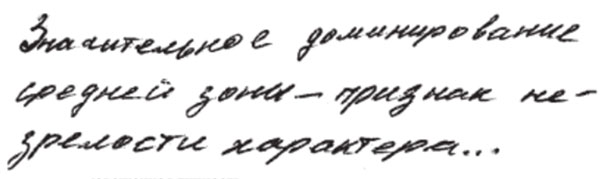 Значительное доминирование
средней зоны — признак не-
зрелости характера...